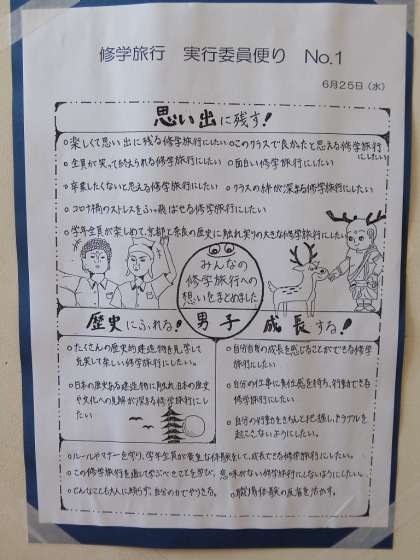 修学旅行 実行委員便り No.1
6月25日（水）
思い出に残す！
○楽しくて思い出に残る修学旅行にしたい ○このクラスで良かったと思える修学旅行にしたい
○全員が笑って終えられる修学旅行にしたい ○面白い修学旅行にしたい
○卒業したくないと思える修学旅行にしたい ○クラスの絆が深まる修学旅行にしたい
○コロナ禍のストレスをふっ飛ばせる修学旅行にしたい
○学年全員が楽しめて、京都と奈良の歴史に触れ実りの大きな修学旅行にしたい
みんなの
修学旅行への
想いをまとめました
男子
歴史にふれる！
○たくさんの歴史的建造物を見学して
充実して楽しい修学旅行にしたい。
○日本の歴史ある建造物に触れ、日本の歴史
や文化への見解が深まる修学旅行にし
たい
成長する！
○自分自身の成長を感じることができる修学
旅行にしたい。
○自分の仕事に責任感を持ち、行動できる
修学旅行にしたい
○自分の行動をきちんと把握し、トラブルを
起こさないようにしたい。
○ルールやマナーを守り、学年全員が貴重な体験をして、成長できる修学旅行にしたい。
○この修学旅行を通して学ぶべきことを学び、意味がない修学旅行にしないようにしたい。
○どんなことも大人に頼らず、自分の力でやりきる。 ○職場体験の反省を活かす。